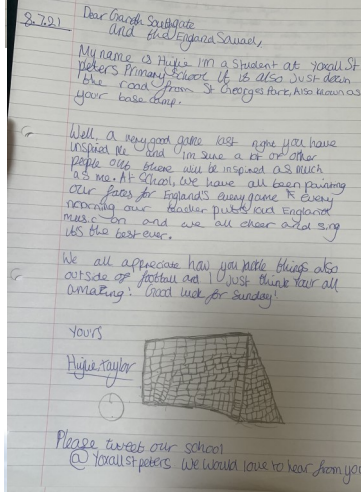 8.7.21
Dear Gareth Southgate
and the England Squad,
My name is Hujie I'm a student at Yoxall St
peters Primary School It is also Just down
the road from St Georges Park, Also known as
your base camp.
Well, a very good game last night you have
inspired me and im sure a lot of other
people out there will be inspired as much
as me. At School, we have all been painting
our faces for England's every game & every
morning our teacher puts loud England
music on and we all cheer and sing
it's the best ever.
We all appreciate how you tackle things also
outside of football and I Just think Your all
amazing! Good luck for Sunday!
Yours
Taylor
Please tweet our school
@Yoxallstpeters We would love to hear from you